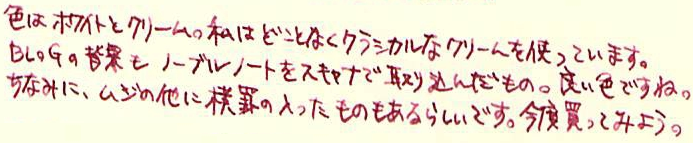 色はホワイトとクリーム。私はどことなくクラシカルなクリームを使っています。
BLOGの背景もノーブルノートをスキャナで取り込んだもの。良い色ですね。
ちなみに、ムジの他に横罫の入ったものもあるらしいです。今度買ってみよう。